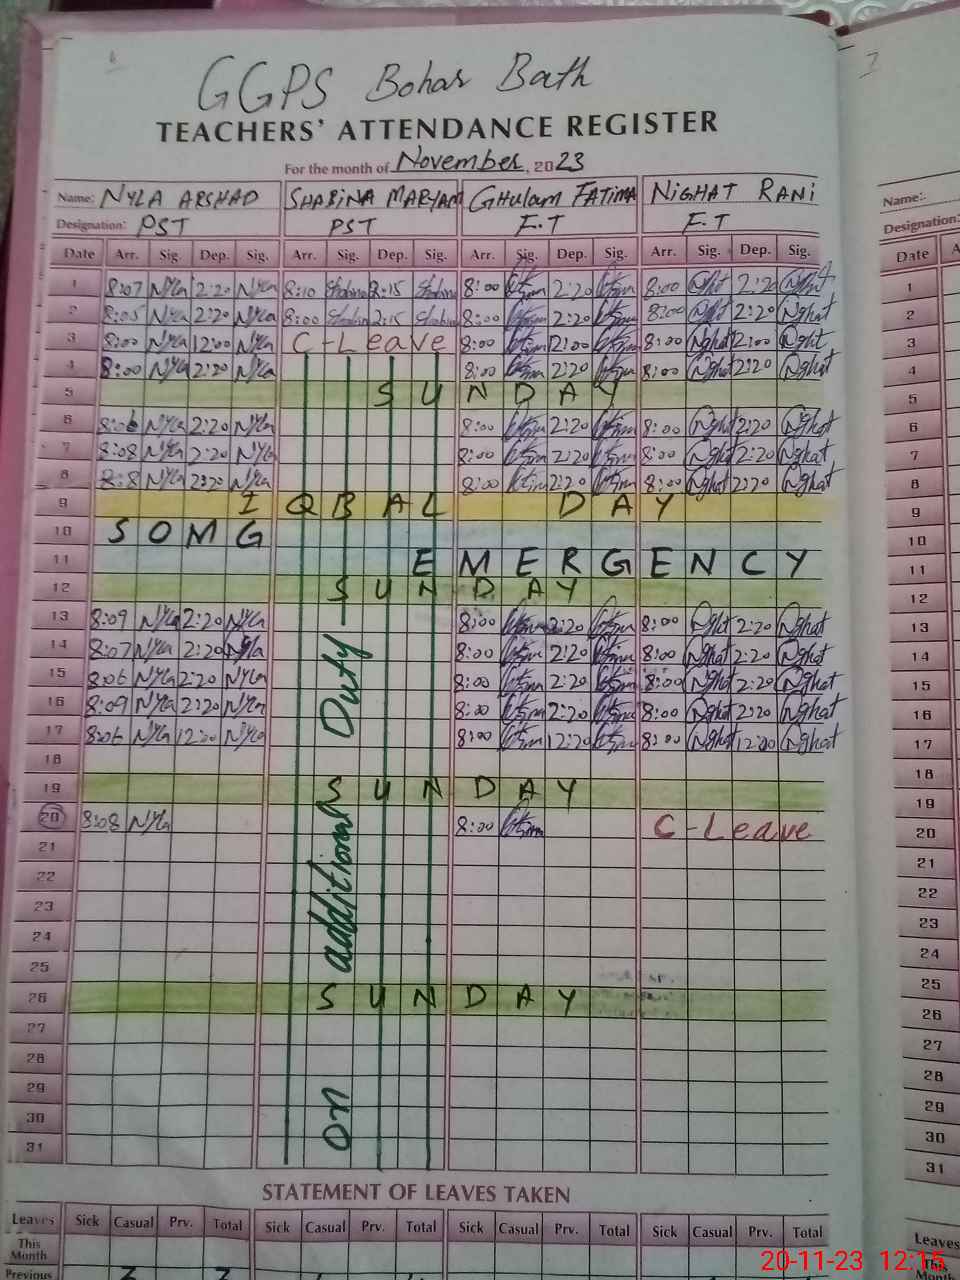 GGPS Bohar Bath
TEACHERS' ATTENDANCE REGISTER
For the month of November, 2023
Name: NYLA ARSHAD SHABINA MARYAM GHulam FATIMA NiGHAT RANi Name:
Designation: PST PST E.T E.T Designation:
Date Arr. Sig. Dep. Sig. Arr. Sig. Dep. Sig. Arr. Sig. Dep. Sig. Arr. Sig. Dep. Sig. Date
1 8:07 Nyla 2:20 Nyla 8:10 2:15 8:00 2:20 8:00 2:20 1
2 8:05 Nyla 2:20 Nyla 8:00 2:15 8:00 2:20 8:00 2:20 Nghat 2
3 8:00 Nyla 12:00 Nyla C-Leave 8:00 12:00 8:00 Nghat 3
4 8:00 Nyla 2:20 Nyla 8:00 2:20 8:00 Nghat 2:20 Nghat 4
5 SUNDAY 5
6 8:06 Nyla 2:20 Nyla 8:00 2:20 8:00 Nghat 2:20 Nghat 6
7 8:08 Nyla 2:20 Nyla 8:00 2:20 8:00 Nghat 2:20 Nghat 7
8 8:8 Nyla 2:20 Nyla 8:00 2:20 8:00 Nghat 2:20 Nghat 8
9 IQBAL DAY 9
10 SOMG 10
11 EMERGENCY 11
12 SUNDAY 12
13 8:09 Nyla 2:20 Nyla 8:00 2:20 8:00 Nghat 2:20 Nghat 13
14 8:07 Nyla 2:20 Nyla 8:00 2:20 8:00 Nghat 2:20 Nghat 14
15 8:06 Nyla 2:20 Nyla 8:00 2:20 8:00 Nghat 2:20 Nghat 15
16 8:09 Nyla 2:20 Nyla 8:00 2:20 8:00 Nghat 2:20 Nghat 16
17 8:06 Nyla 12:00 Nyla 8:00 12:20 8:00 Nghat 12:00 Nghat 17
18 18
19 SUNDAY 19
20 8:08 Nyla 8:00 C-Leave 20
21 21
22 22
23 23
24 24
25 25
26 SUNDAY 26
27 27
28 28
29 29
30 30
31 31
on additional Duty
STATEMENT OF LEAVES TAKEN
Leaves Sick Casual Prv. Total Sick Casual Prv. Total Sick Casual Prv. Total Sick Casual Prv. Total Leaves
This Month This Month
Previous
20-11-23 12:15